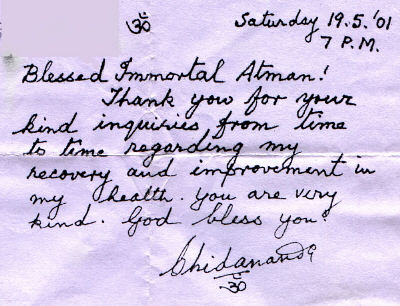 ॐ
Saturday 19.5.'01
7 P.M.
Blessed Immortal Atman!
Thank you for your
kind inquiries from time
to time regarding my
recovery and improvement in
my health. You are very
kind. God bless you!
Chidananda
ॐ